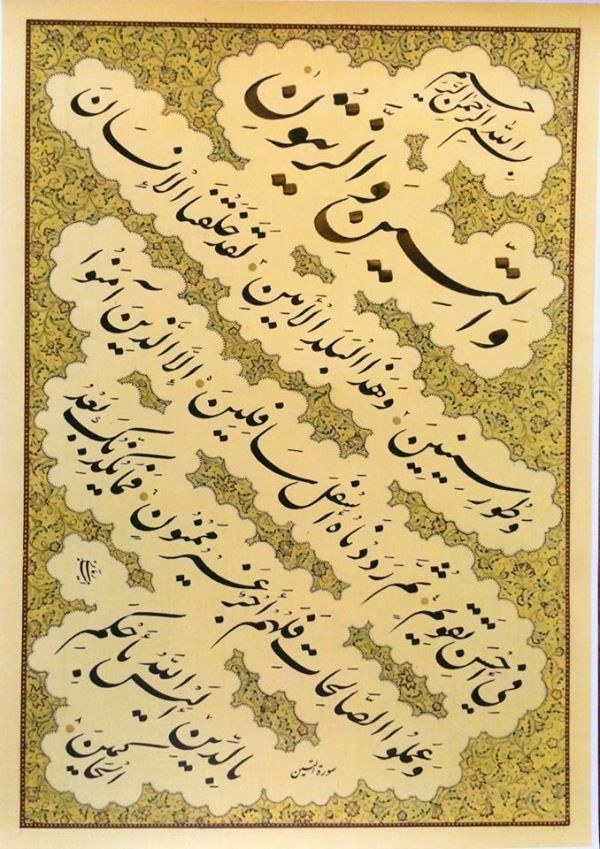 بسم الله الرحمن الرحيم
والتّينِ والزّيتونِ
وطورِ سينينَ وهذا البلدِ الأمينِ لقد خلقنا الإنسانَ
في أحسنِ تقويمٍ ثمّ رددناه أسفلَ سافلينَ إلّا الّذينَ آمنوا
وعملوا الصّالحاتِ فلهم أجرٌ غيرُ ممنونٍ فما يكذّبك بعدُ
بالدّينِ أليس اللهُ بأحكمِ
الحاكمينَ
سورة التين